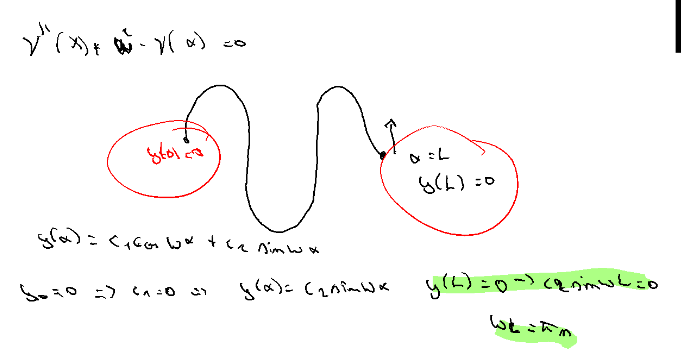 y''(x) + ω² · y(x) = 0
y(0) = 0
x = L
y(L) = 0
y(x) = c₁ cos ωx + c₂ sin ωx
y₀ = 0 => c₁ = 0 => y(x) = c₂ sin ωx
y(L) = 0 → c₂ sin ωL = 0
ωL = πn